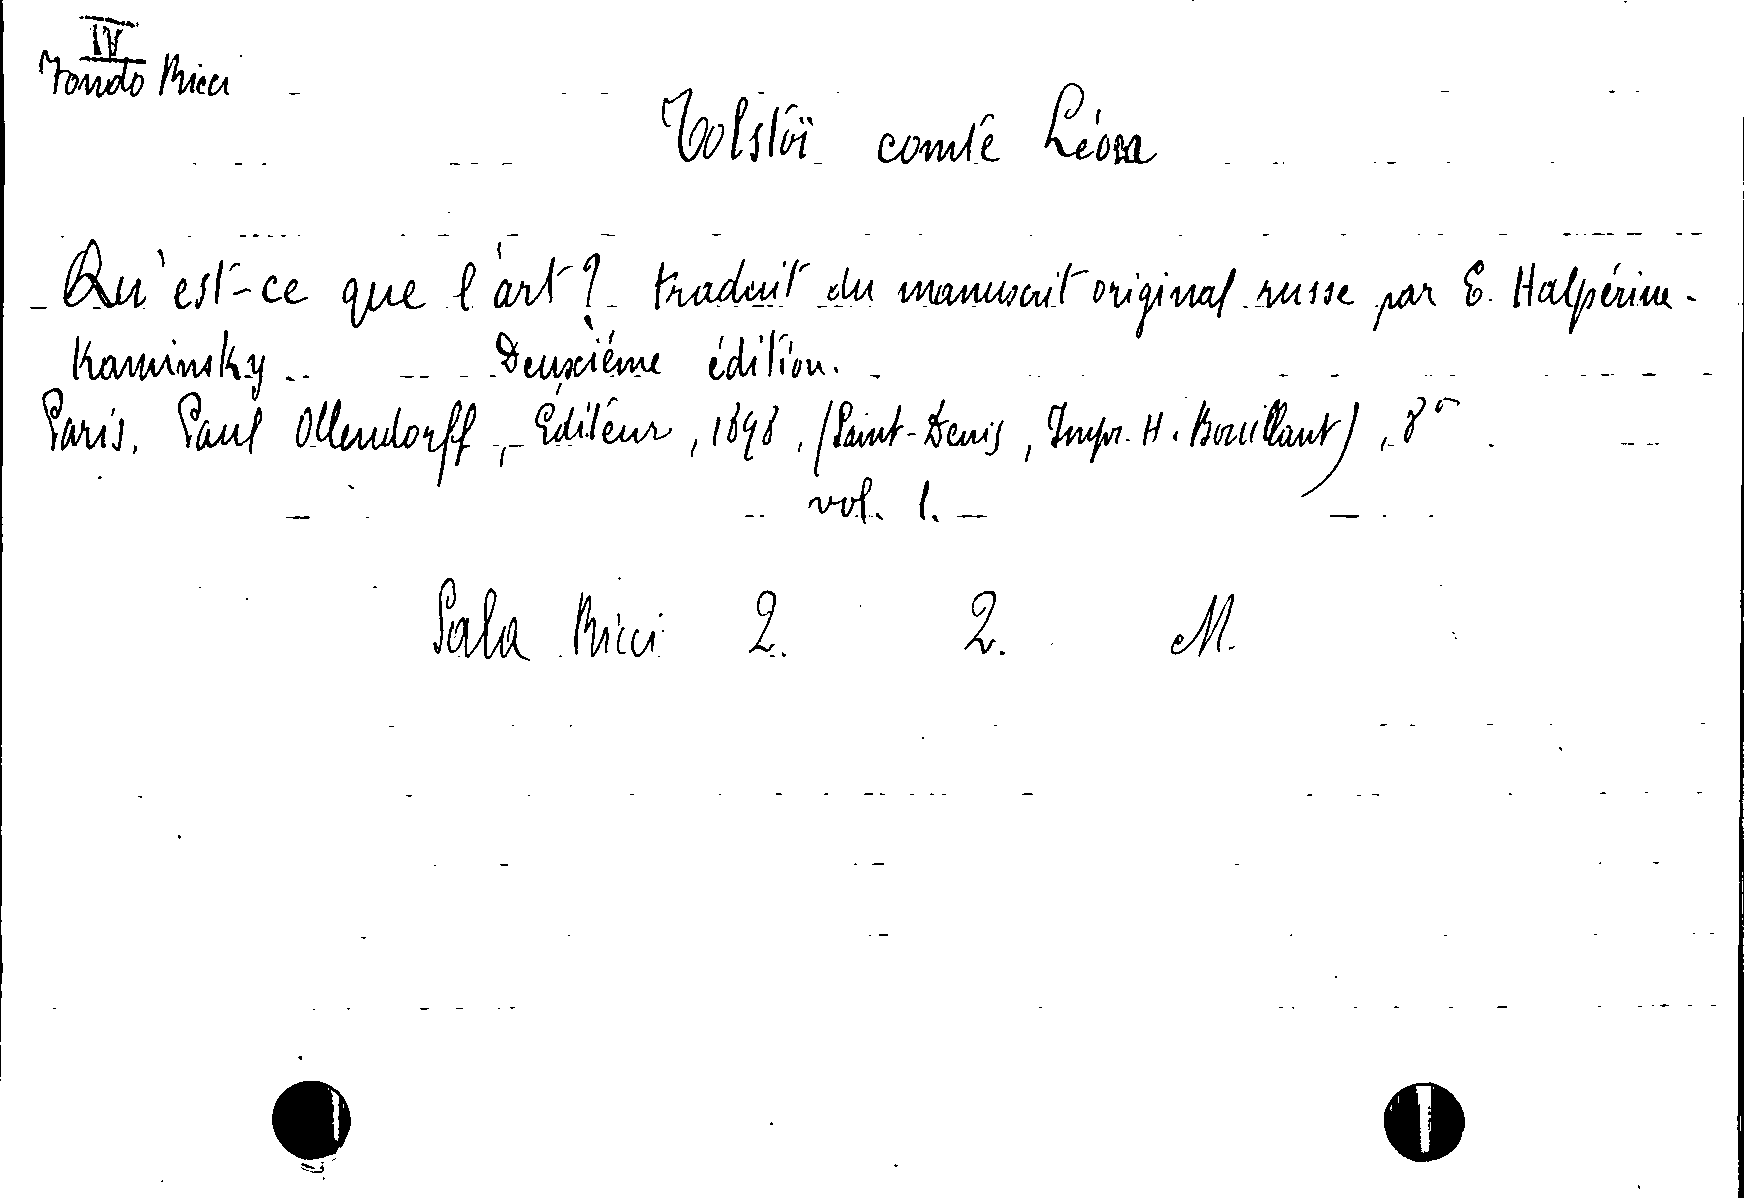 IV
Fondo Ricci
Tolstoï comte Léon
Qu'est-ce que l'art? traduit du manuscrit original russe par E. Halpérine-
Kaminsky Deuxième édition.
Paris, Paul Ollendorff, Éditeur, 1898, (Saint-Denis, Impr. H. Bouillant), 8°
vol. 1.
Sala Ricci 2. 2. M.